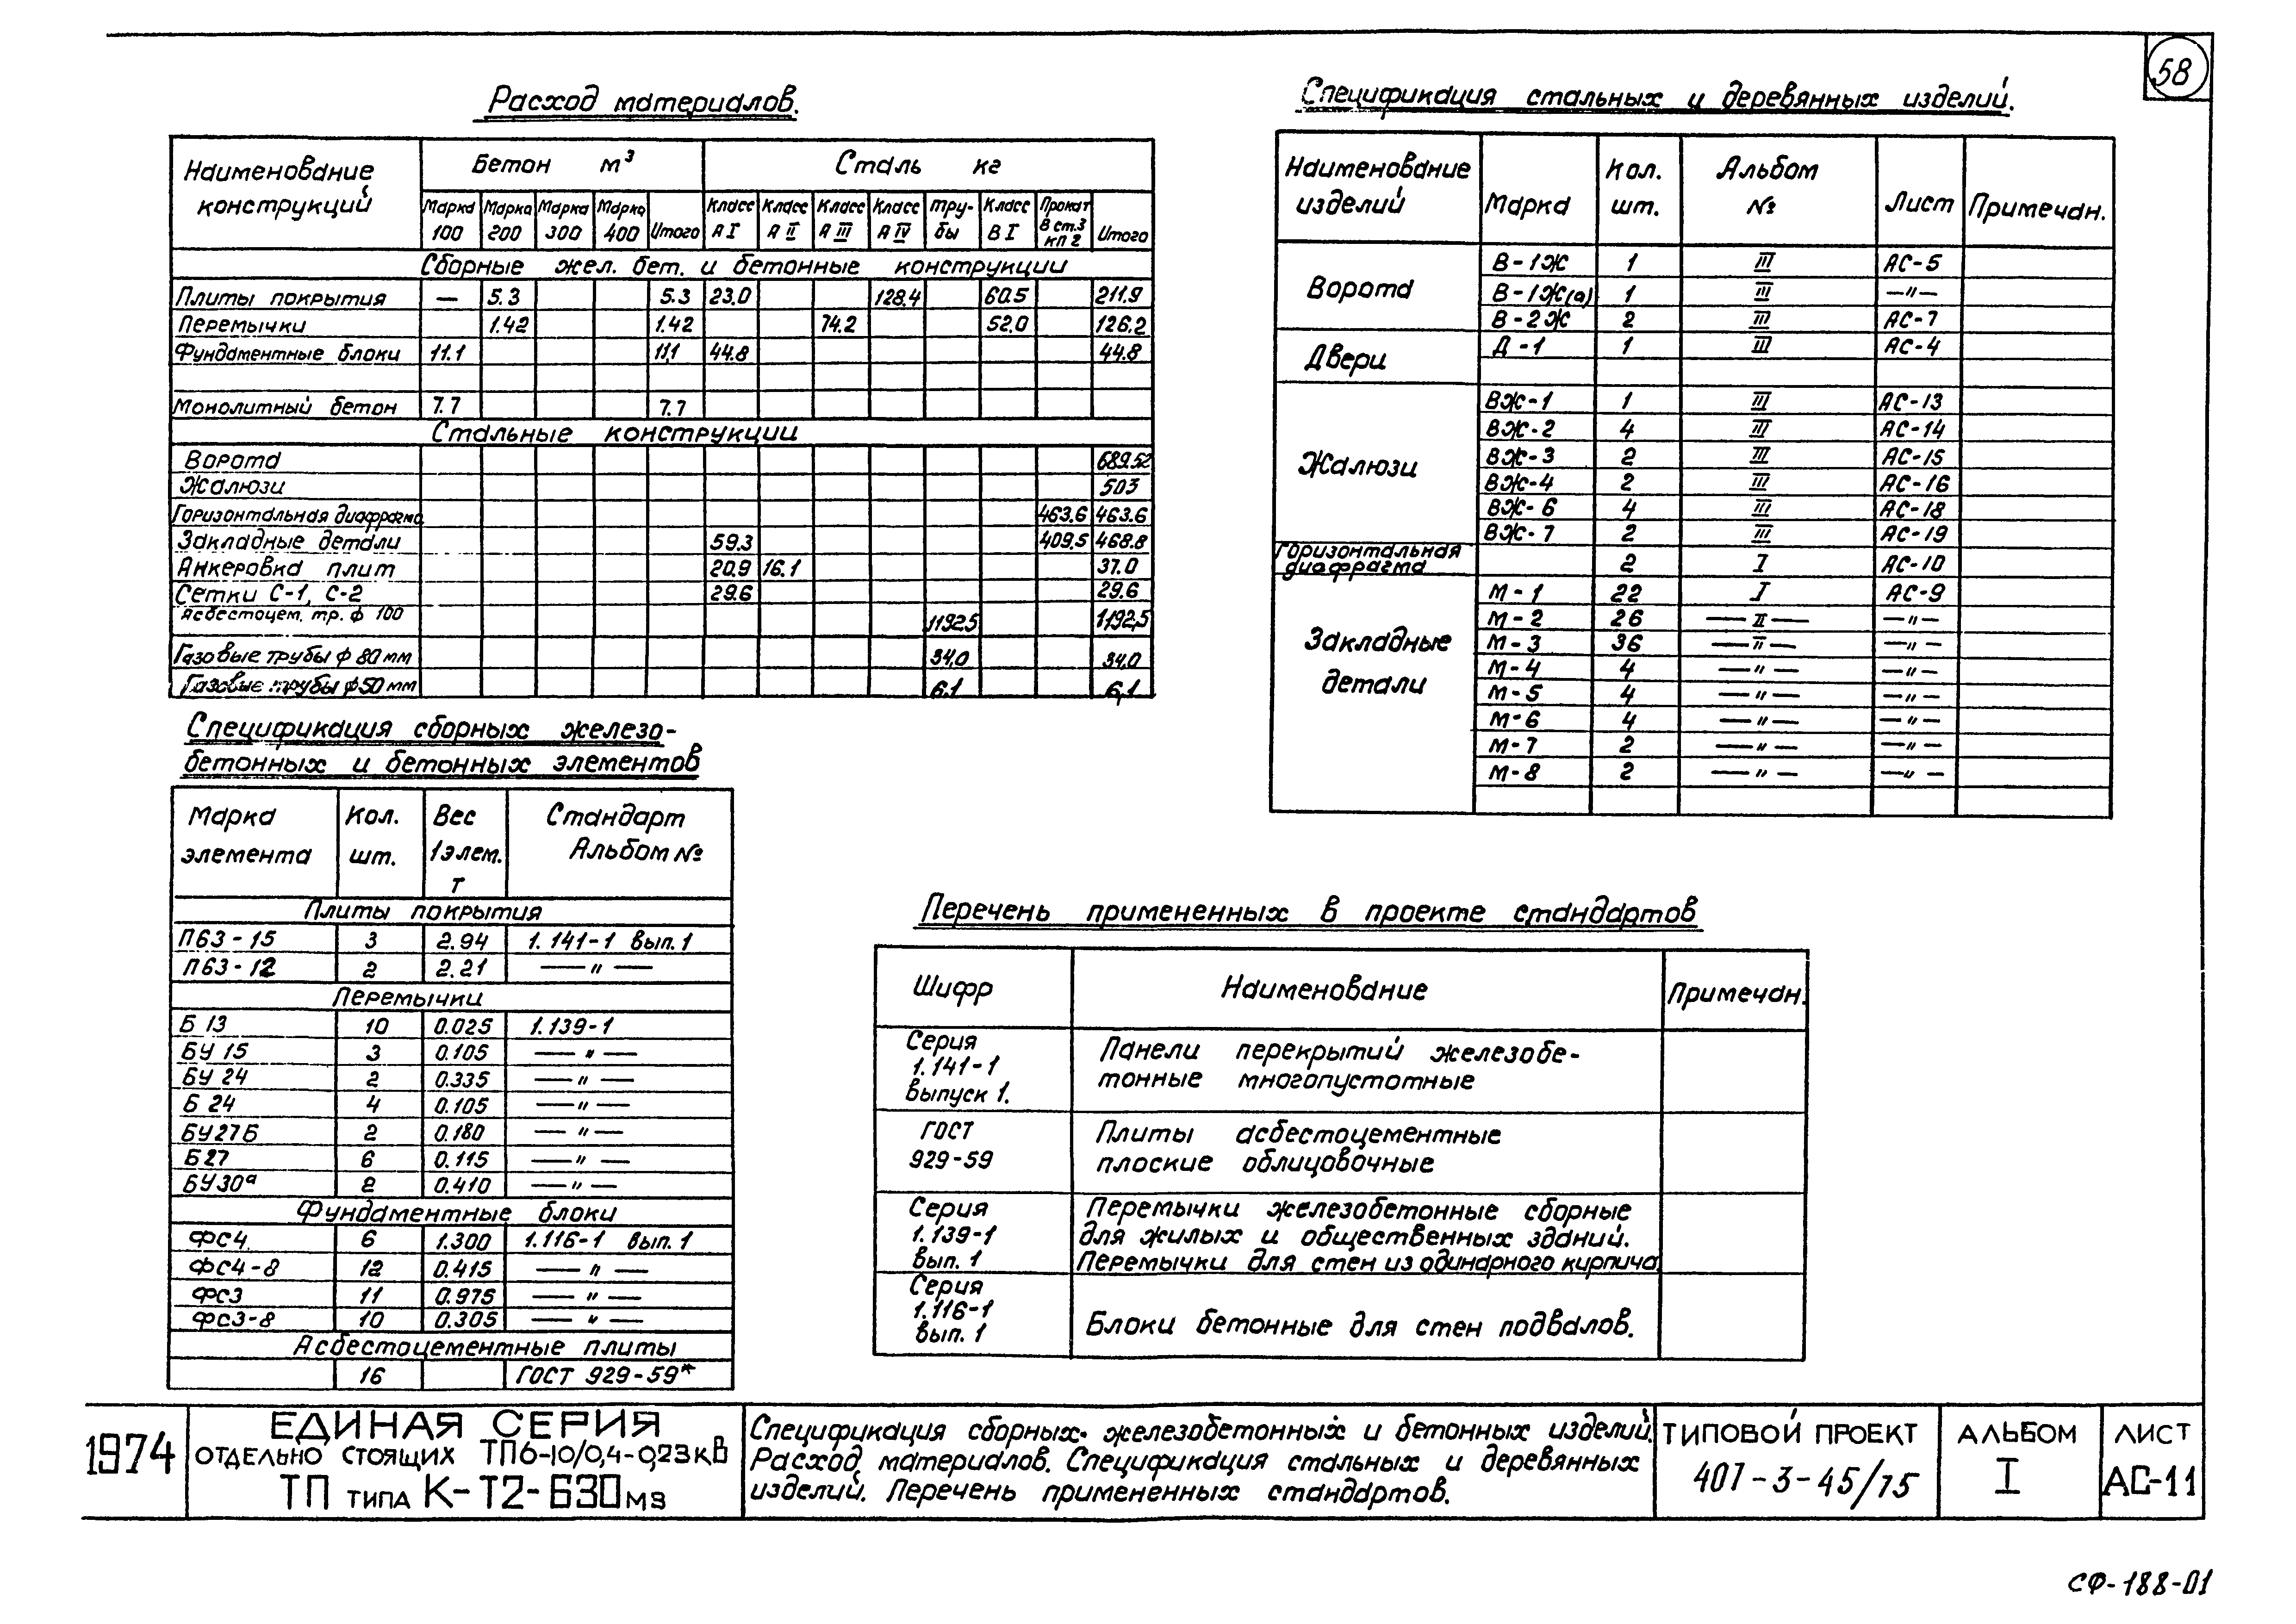 58
Расход материалов.
Наименование конструкций | Бетон м³ | Сталь кг
Марка 100 | Марка 200 | Марка 300 | Марка 400 | Итого | Класс А I | Класс А II | Класс А III | Класс А IV | Тру-бы | Класс В I | Прокат В ст.3 кп 2 | Итого
Сборные жел. бет. и бетонные конструкции
Плиты покрытия — 5.3 5.3 23.0 128.4 60.5 211.9
Перемычки 1.42 1.42 74.2 52.0 126.2
Фундаментные блоки 11.1 11,1 44.8 44.8
Монолитный бетон 7.7 7.7
Стальные конструкции
Ворота 689.52
Жалюзи 503
Горизонтальная диафрагма 463.6 463.6
Закладные детали 59.3 409.5 468.8
Анкеровка плит 20.9 16.1 37.0
Сетки С-1, С-2 29.6 29.6
Асбестоцем. тр. ф 100 1192,5 1192,5
Газовые трубы ф 80 мм 34.0 34.0
Газовые трубы ф 50 мм 6.1 6,1
Спецификация сборных железо-
бетонных и бетонных элементов
Марка элемента | Кол. шт. | Вес 1 элем. т | Стандарт Альбом №
Плиты покрытия
П63-15 3 2.94 1.141-1 вып.1
П63-12 2 2.21 — " —
Перемычки
Б 13 10 0.025 1.139-1
БУ 15 3 0.105 — " —
БУ 24 2 0.335 — " —
Б 24 4 0.105 — " —
БУ27Б 2 0.180 — " —
Б27 6 0.115 — " —
БУ30ª 2 0.410 — " —
Фундаментные блоки
ФС4 6 1.300 1.116-1 вып.1
ФС4-8 12 0.415 — " —
ФС3 11 0.975 — " —
ФС3-8 10 0.305 — " —
Асбестоцементные плиты
16 ГОСТ 929-59*
Спецификация стальных и деревянных изделий.
Наименование изделий | Марка | Кол. шт. | Альбом № | Лист | Примечан.
Ворота
В-1Ж 1 III АС-5
В-1Ж(а) 1 III — " —
В-2Ж 2 III АС-7
Двери
Д-1 1 III АС-4
Жалюзи
ВЖ-1 1 III АС-13
ВЖ-2 4 III АС-14
ВЖ-3 2 III АС-15
ВЖ-4 2 III АС-16
ВЖ-6 4 III АС-18
ВЖ-7 2 III АС-19
Горизонтальная диафрагма 2 I АС-10
Закладные детали
М-1 22 I АС-9
М-2 26 — " — — " —
М-3 36 — " — — " —
М-4 4 — " — — " —
М-5 4 — " — — " —
М-6 4 — " — — " —
М-7 2 — " — — " —
М-8 2 — " — — " —
Перечень примененных в проекте стандартов
Шифр | Наименование | Примечан.
Серия 1.141-1 выпуск 1. | Панели перекрытий железобе-
тонные многопустотные
ГОСТ 929-59 | Плиты асбестоцементные
плоские облицовочные
Серия 1.139-1 вып. 1 | Перемычки железобетонные сборные
для жилых и общественных зданий.
Перемычки для стен из одинарного кирпича.
Серия 1.116-1 вып. 1 | Блоки бетонные для стен подвалов.
1974
ЕДИНАЯ СЕРИЯ
ОТДЕЛЬНО СТОЯЩИХ ТП6-10/0,4-0,23кВ
ТП ТИПА К-Т2-630 М3
Спецификация сборных железобетонных и бетонных изделий.
Расход материалов. Спецификация стальных и деревянных
изделий. Перечень примененных стандартов.
ТИПОВОЙ ПРОЕКТ
407-3-45/75
АЛЬБОМ
I
ЛИСТ
АС-11
СФ-188-01